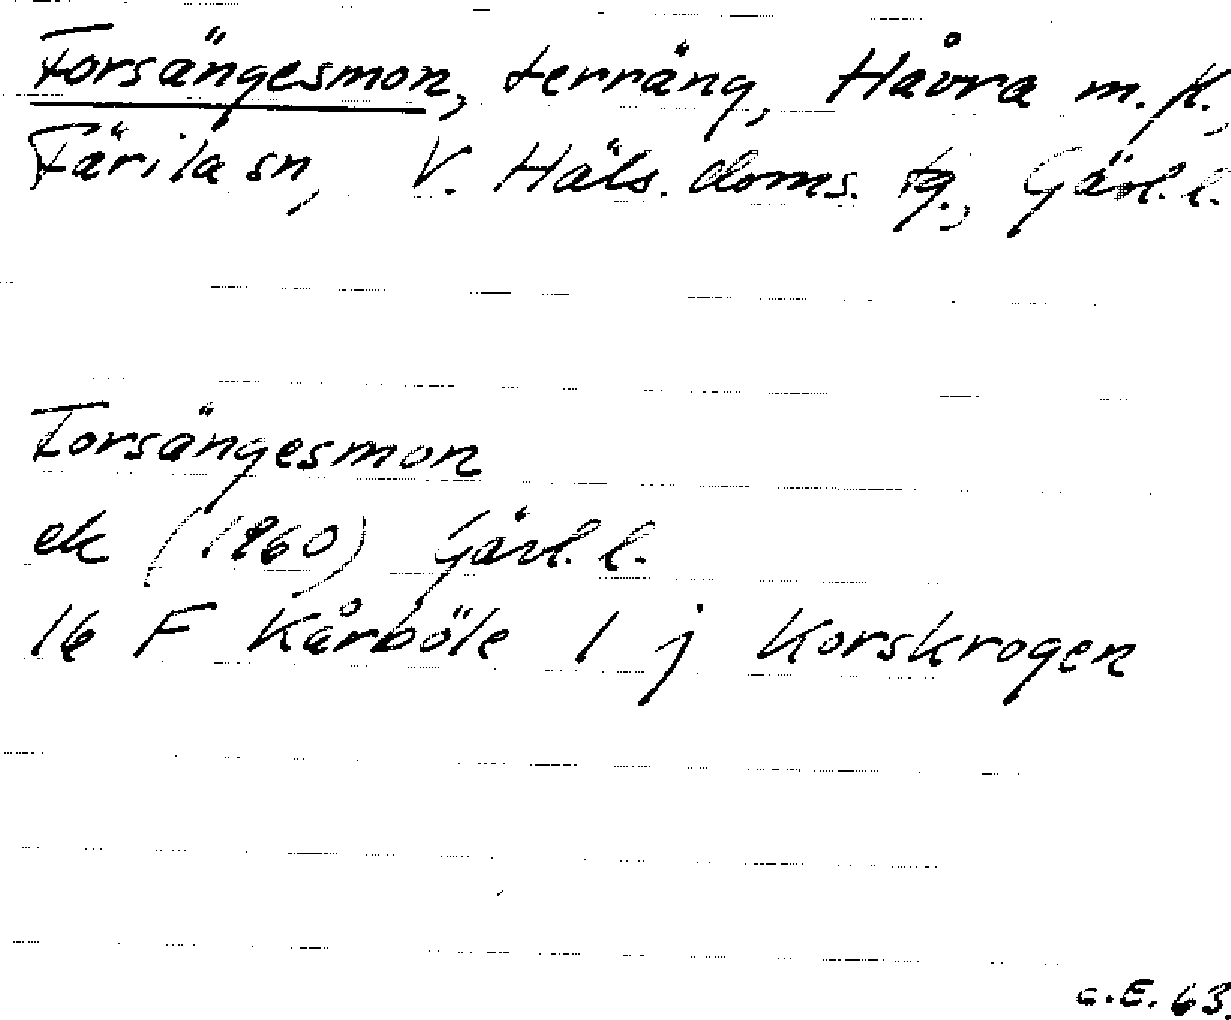 Forsängesmon, terräng, Håvra m. fl.,
Färila sn, V. Häls. doms. tg., Gävl. l.
Forsängesmon
ek (1960) Gävl. l.
16 F Kårböle 1 j Korskrogen
C.E. 63.